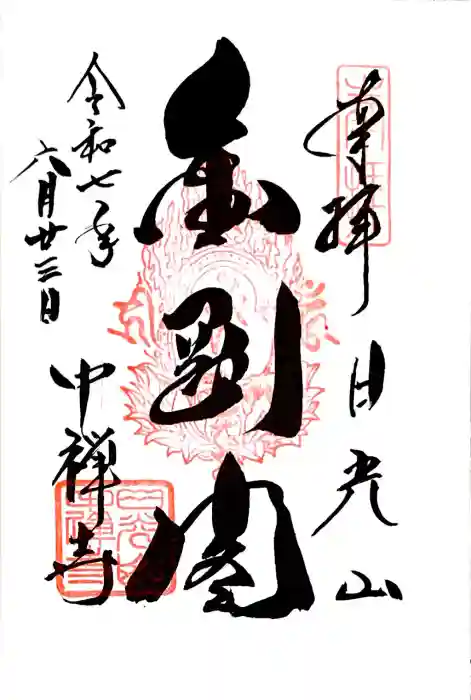 奉拝 日光山
金剛閣
令和七年
六月廿三日
中禅寺